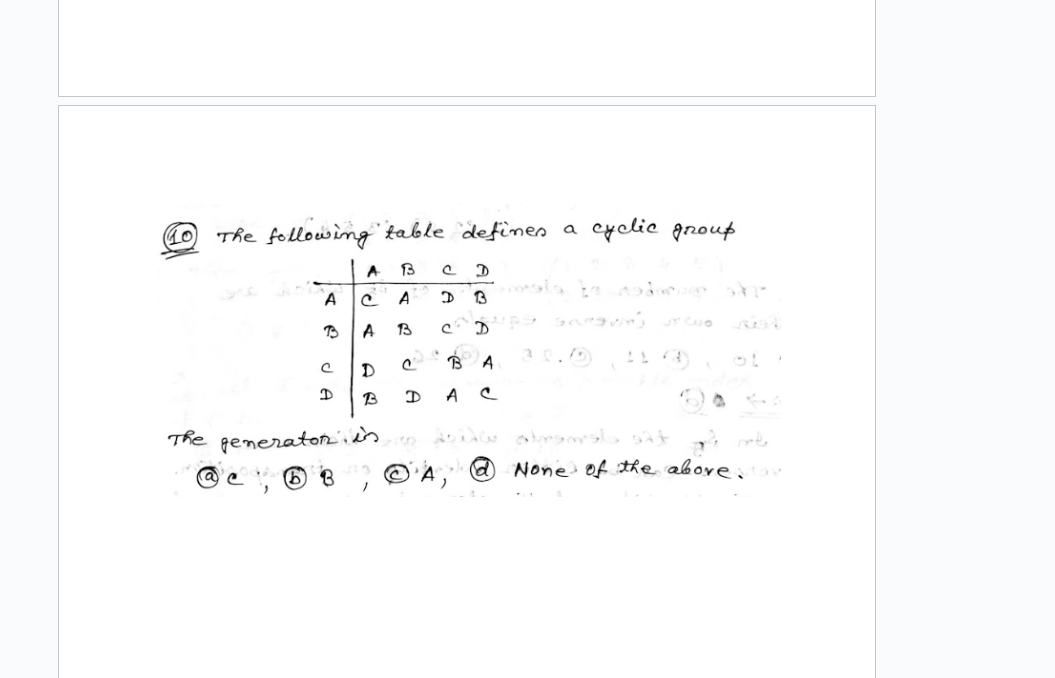 10 The following table defines a cyclic group
A B C D
A C A D B
B A B C D
C D C B A
D B D A C
The generator is
(a) C, (b) B, (c) A, (d) None of the above.